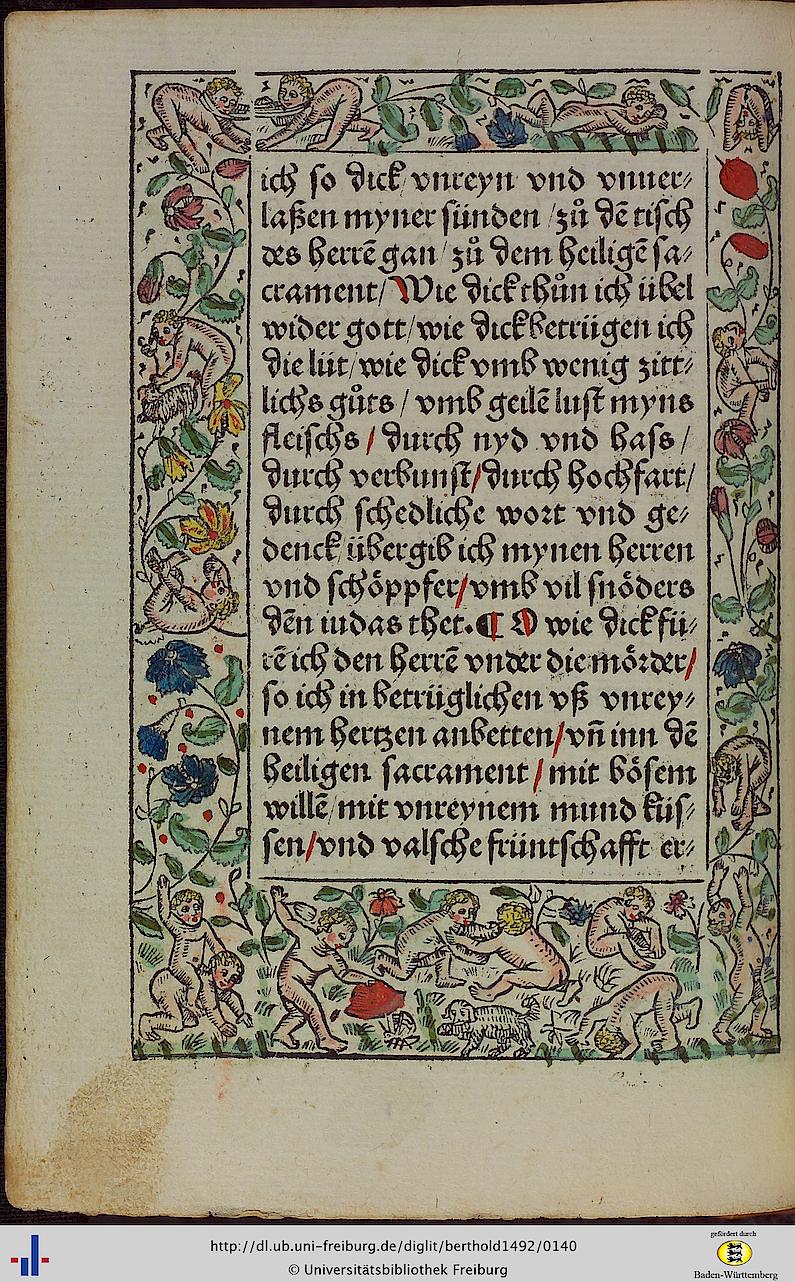 ich so dick/ vnreyn vnd vnuer⸗
laßen myner sünden /zuͦ dē tisch
des herrē gan/ zuͦ dem heiligē sa⸗
crament/ Wie dick thuͦn ich übel
wider gott/wie dick betriigen ich
die liit/wie dick vmb wenig zitt⸗
lichs guͦts / vmb geilē lust myns
fleischs / durch nyd vnd hass /
durch verbunst/durch hochfart/
durch schedliche wort vnd ge⸗
denck/übergib ich mynen herren
vnd schöppfer/vmb vil snöders
dēn iudas thet.¶ O wie dick fii⸗
rē ich den herrē vnder die mörder/
so ich in betriiglichen vß vnrey⸗
nem hertzen anbetten/vn̄ inn dē
heiligen sacrament /mit bösem
willē/mit vnreynem mund kiis⸗
sen/vnd valsche friintschafft er⸗
http://dl.ub.uni-freiburg.de/diglit/berthold1492/0140
© Universitätsbibliothek Freiburg
gefördert durch
Baden-Württemberg